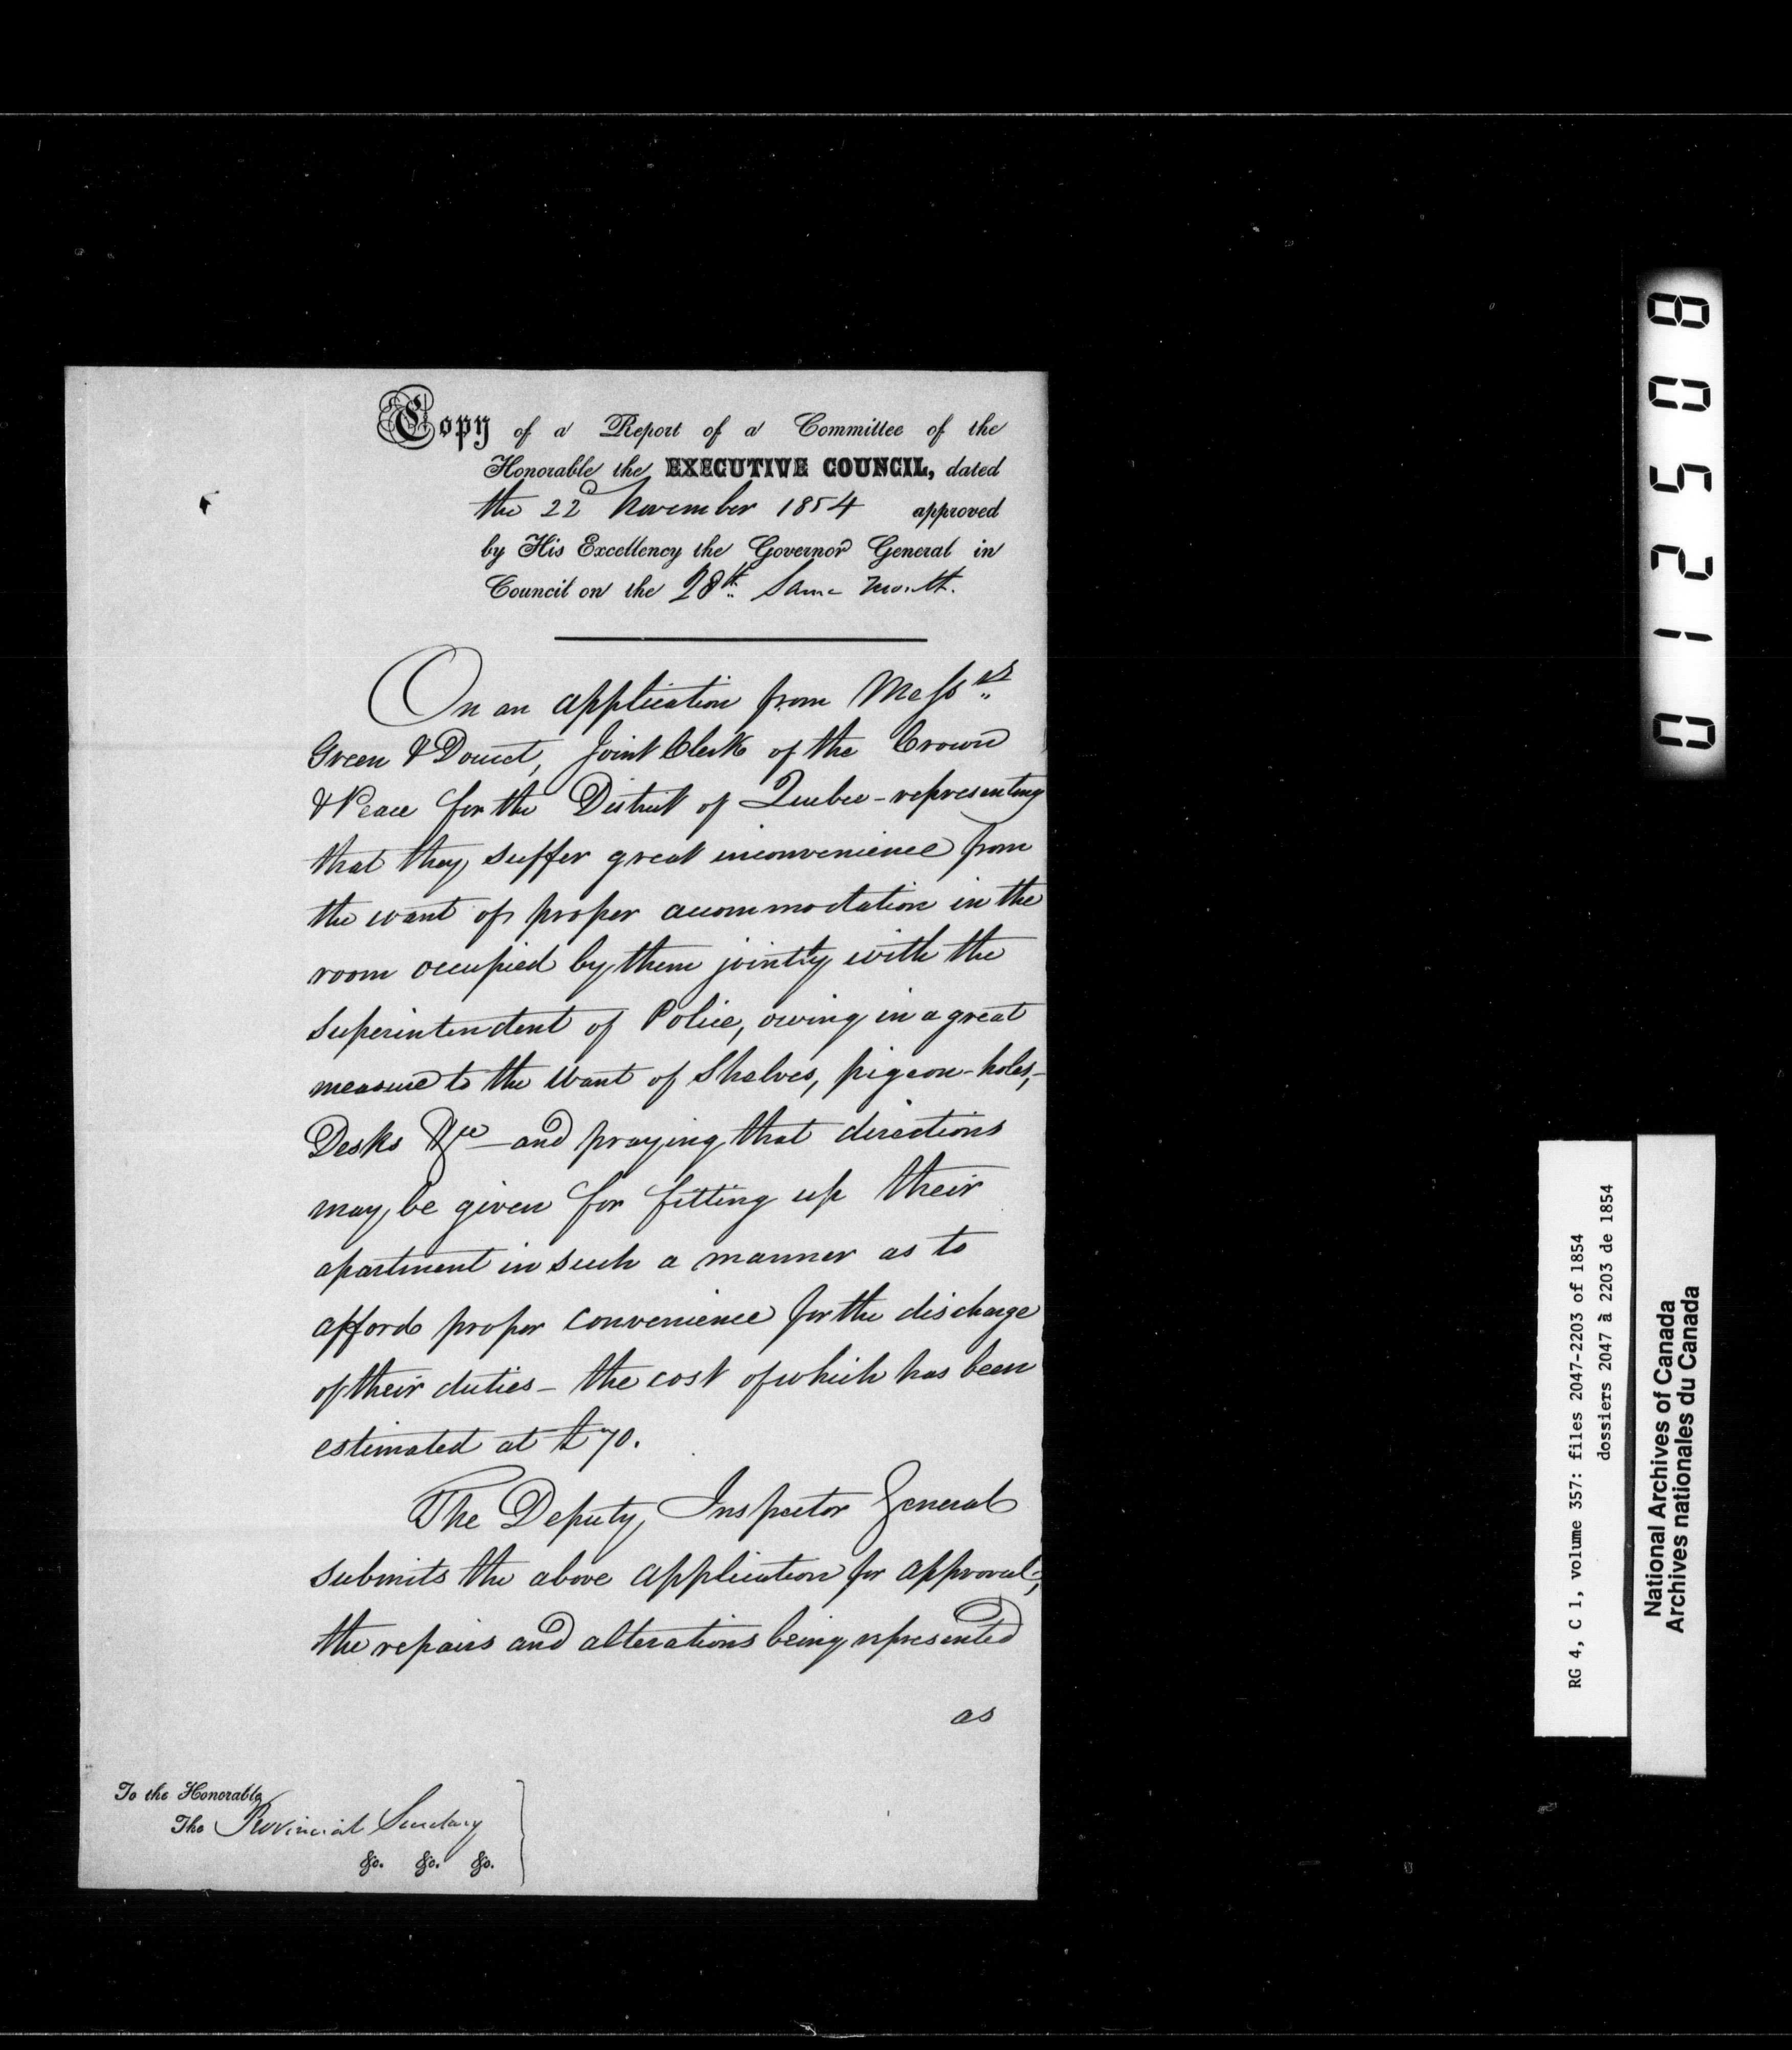 Copy of a Report of a Committee of the
Honorable the EXECUTIVE COUNCIL, dated
the 22d November 1854 approved
by His Excellency the Governor General in
Council on the 28th Same Month.
On an application from Messrs
Green & Doucet, Joint Clerk of the Crown
& Peace for the District of Quebec - representing
that they suffer great inconvenience from
the want of proper accommodation in the
room occupied by them jointly with the
Superintendent of Police, owing in a great
measure to the want of Shelves, pigeon-holes,
Desks &ce - and praying that directions
may be given for fitting up their
apartment in such a manner as to
afford proper convenience for the discharge
of their duties - the cost of which has been
estimated at £70.
The Deputy Inspector General
submits the above application for approval;
the repairs and alterations being represented
as
To the Honorable
The Provincial Secretary
&c. &c. &c.
805210
RG 4, C 1, volume 357: files 2047-2203 of 1854
dossiers 2047 à 2203 de 1854
National Archives of Canada
Archives nationales du Canada